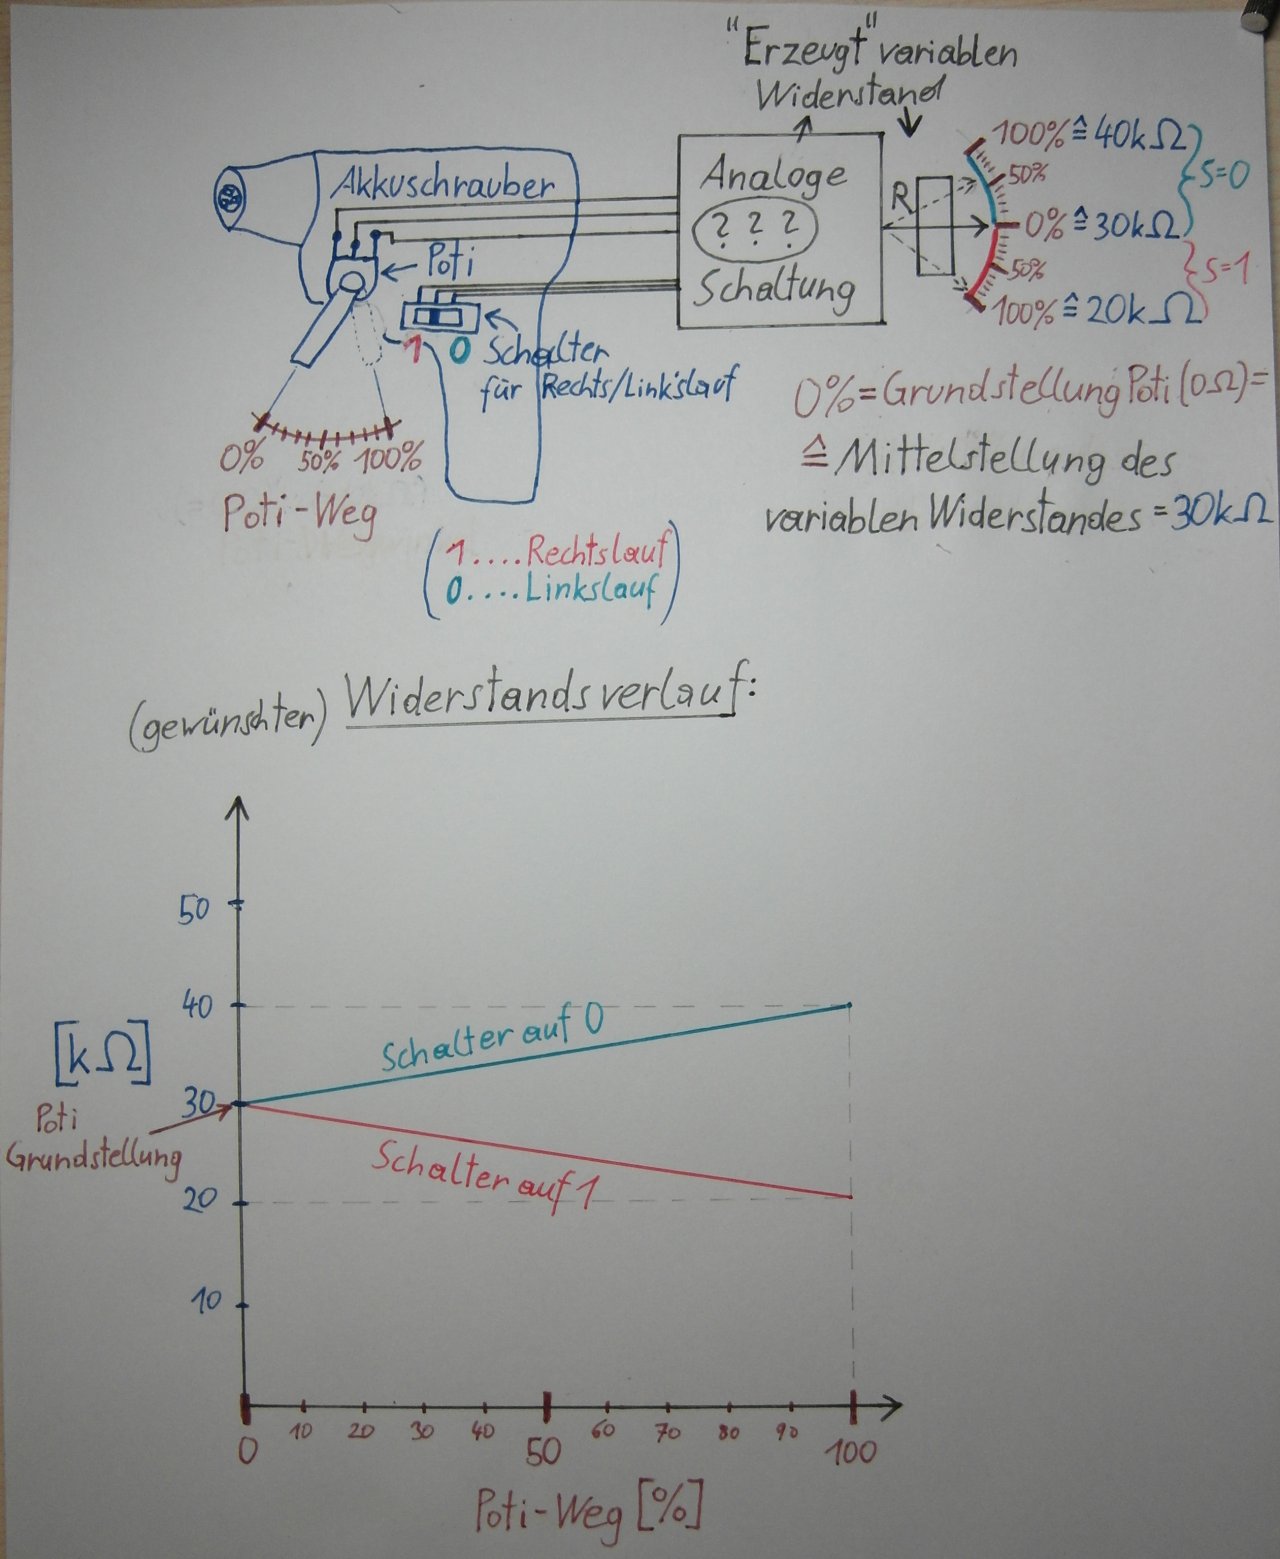 "Erzeugt" variablen
Widerstand
Akkuschrauber
Poti
1 0 Schalter
für Rechts/Linkslauf
0% 50% 100%
Poti-Weg
(1....Rechtslauf
0....Linkslauf)
Analoge
? ? ?
Schaltung
R
100% ≙ 40kΩ
50%
S=0
0% ≙ 30kΩ
50%
S=1
100% ≙ 20kΩ
0% = Grundstellung Poti (0Ω) =
≙ Mittelstellung des
variablen Widerstandes = 30kΩ
(gewünschter) Widerstandsverlauf:
50
40
[kΩ]
30
Poti
Grundstellung
20
10
Schalter auf 0
Schalter auf 1
0 10 20 30 40 50 60 70 80 90 100
Poti-Weg [%]